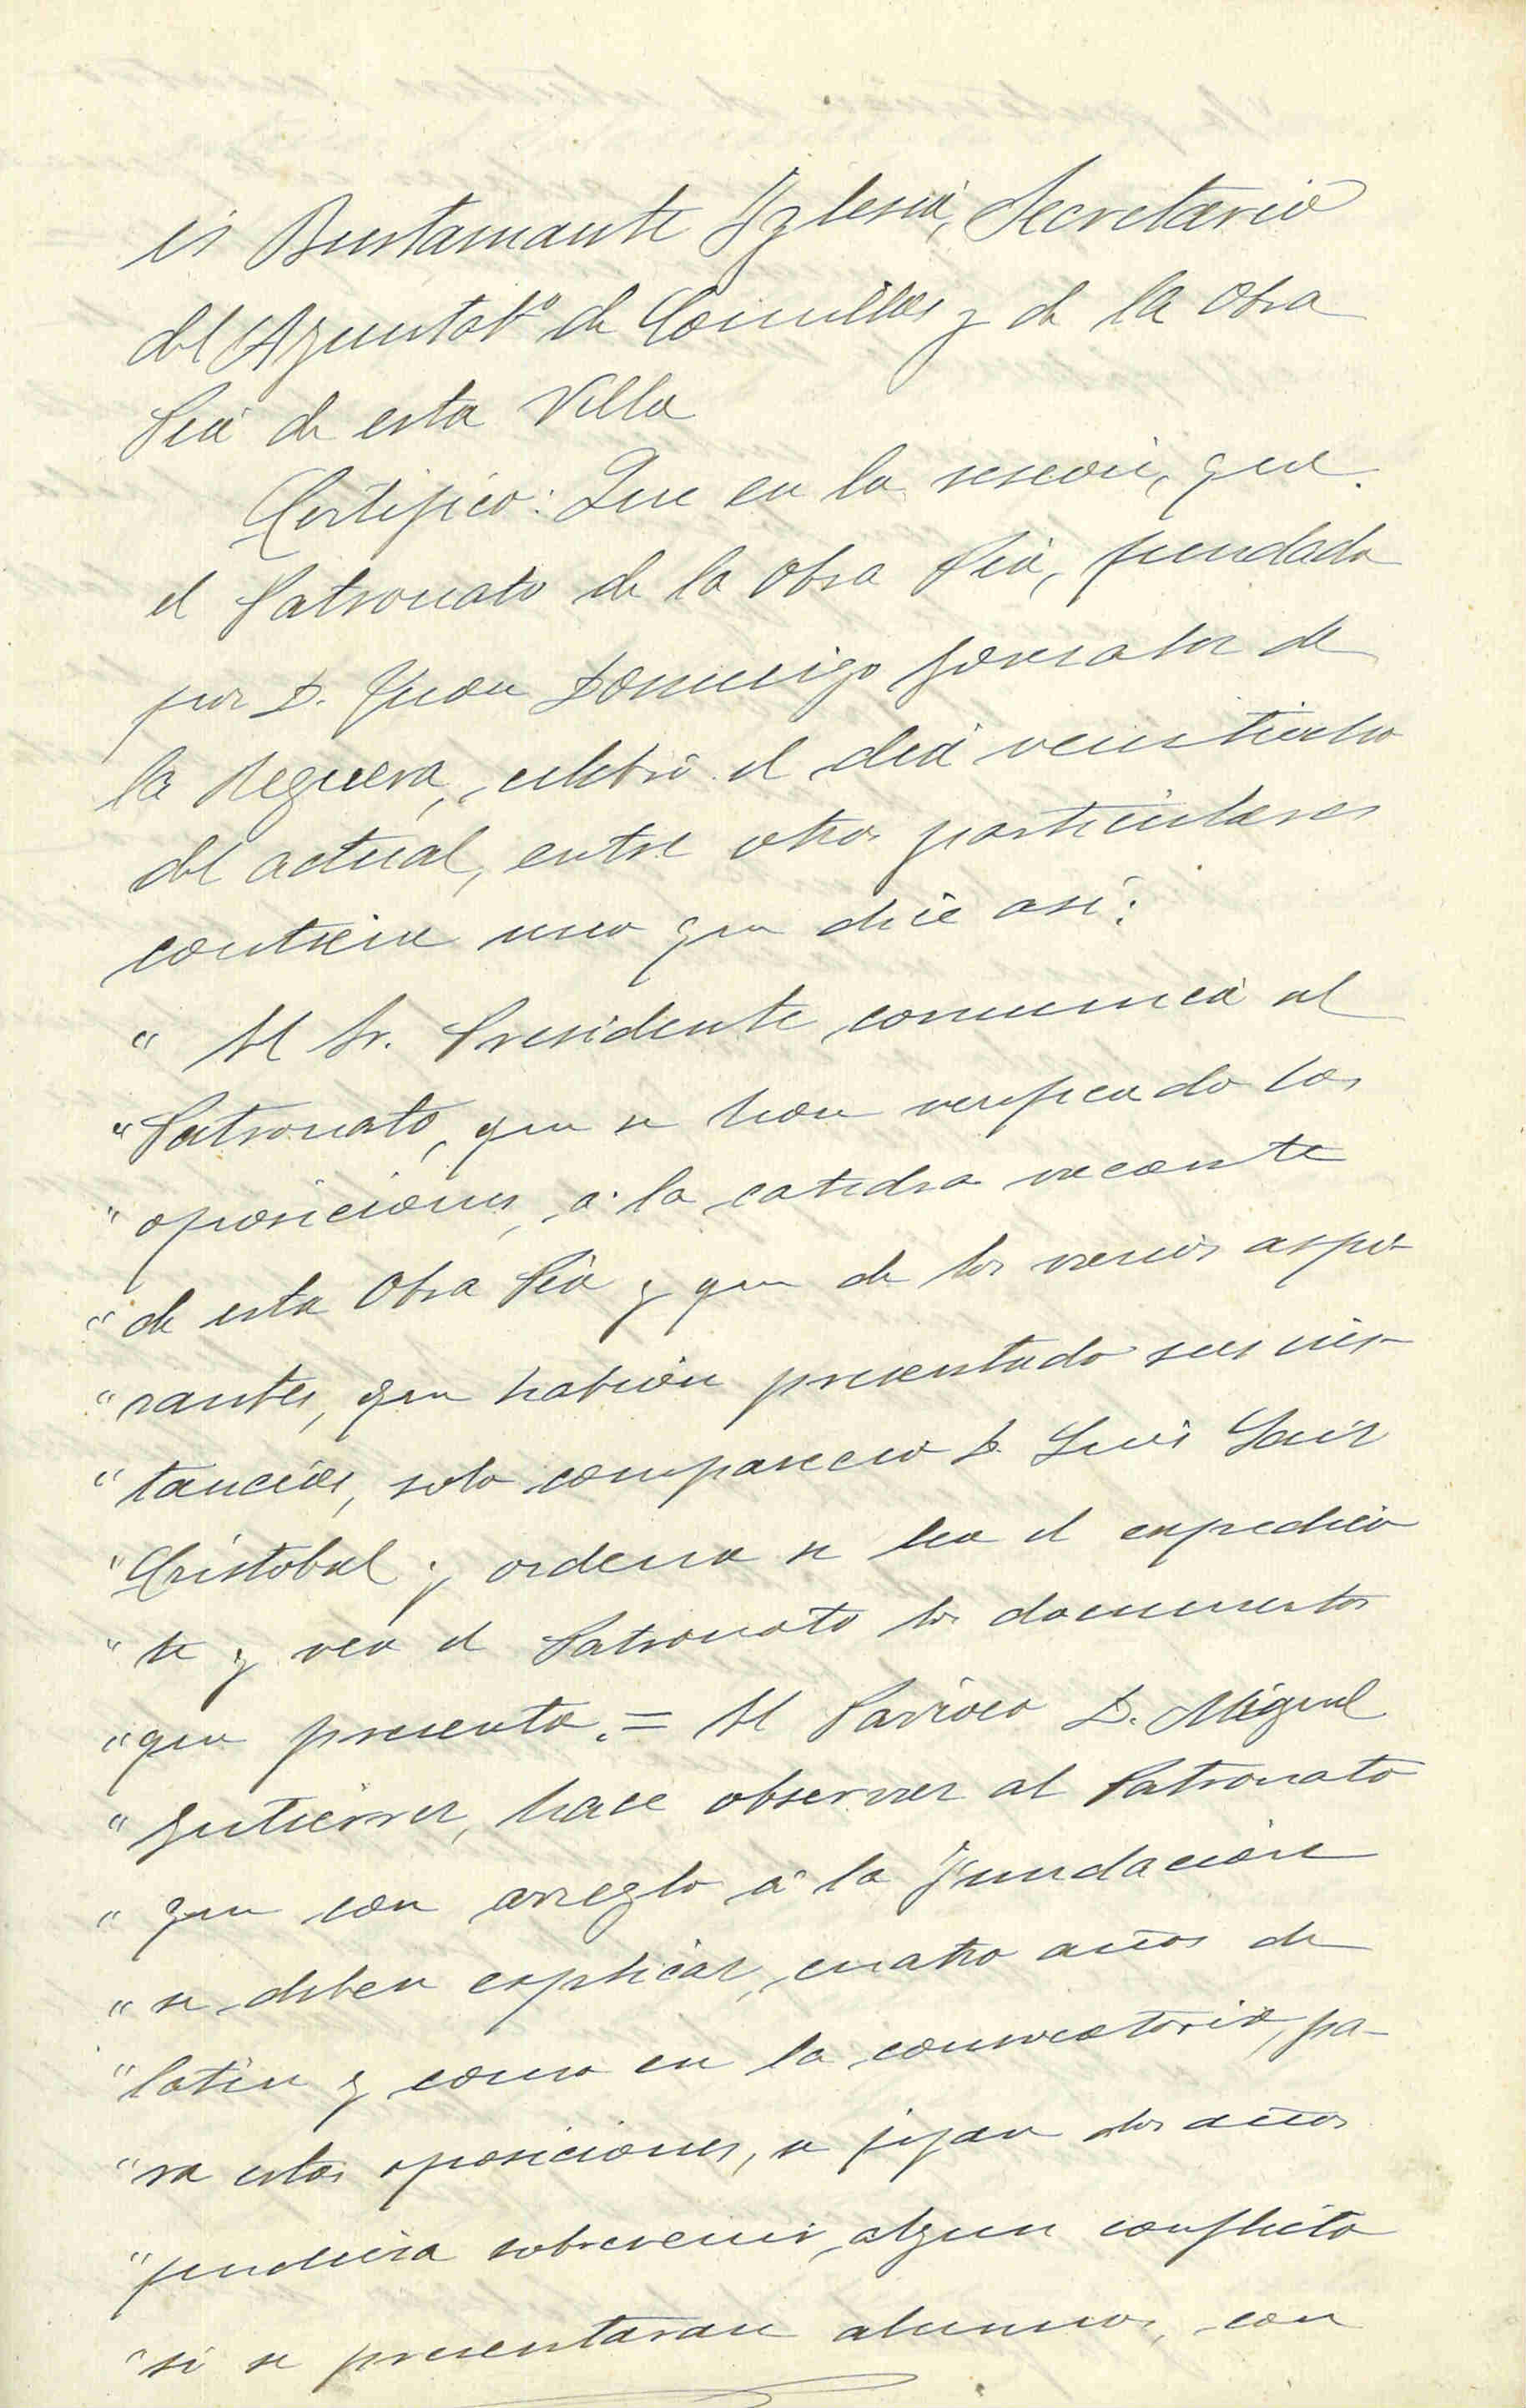 is Bustamante Yglesia, Secretario
del Ayuntatº de Comillas y de la Obra
Pía de esta Villa
Certifico: Que en la sesion, que
el Patronato de la Obra Pía, fundada
por D. Juan Domingo Gonzalez de
la Reguera, celebró el día veinticuatro
del actual, entre otros particulares
contiene uno que dice así:
" El Sr. Presidente comunica al
"Patronato, que se han verificado las
"oposiciones, á la catedra vacante
"de esta Obra Pía y que de los varios aspi-
"rantes, que habian presentado sus ins-
"tancias, solo compareció D. Luis Saiz
"Cristobal; y ordena se lea el expedien
"te y vea el Patronato los documentos
"que presenta. = El Párroco D. Miguel
"Gutierrez, hace observar al Patronato
"que con arreglo á la Fundación
"se deben explicar, cuatro años de
"latin y como en la convocatoria, pa-
"ra estas oposiciones, se fijan dos años
"pudiera sobrevenir, algun conflicto
"si se presentaran alumnos, con